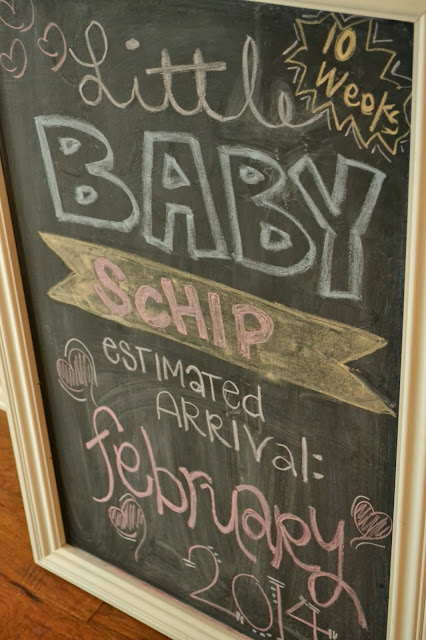 10
Weeks
Little
BABY
ScHIP
estimated
ARRIVAL:
february
2014